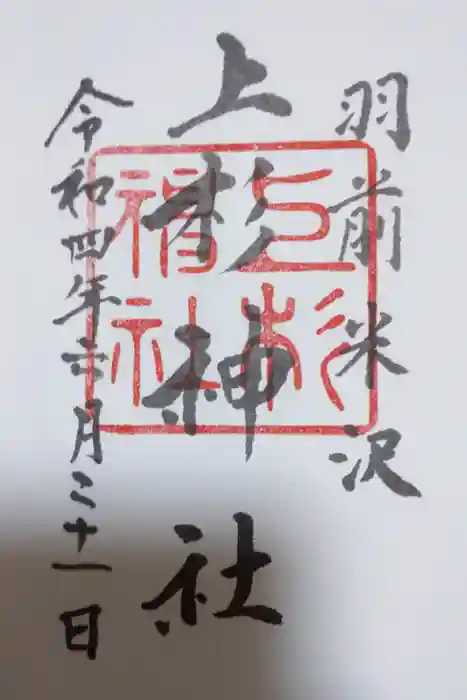 羽前米沢
上杉神社
上杉
神社
令和四年六月二十一日